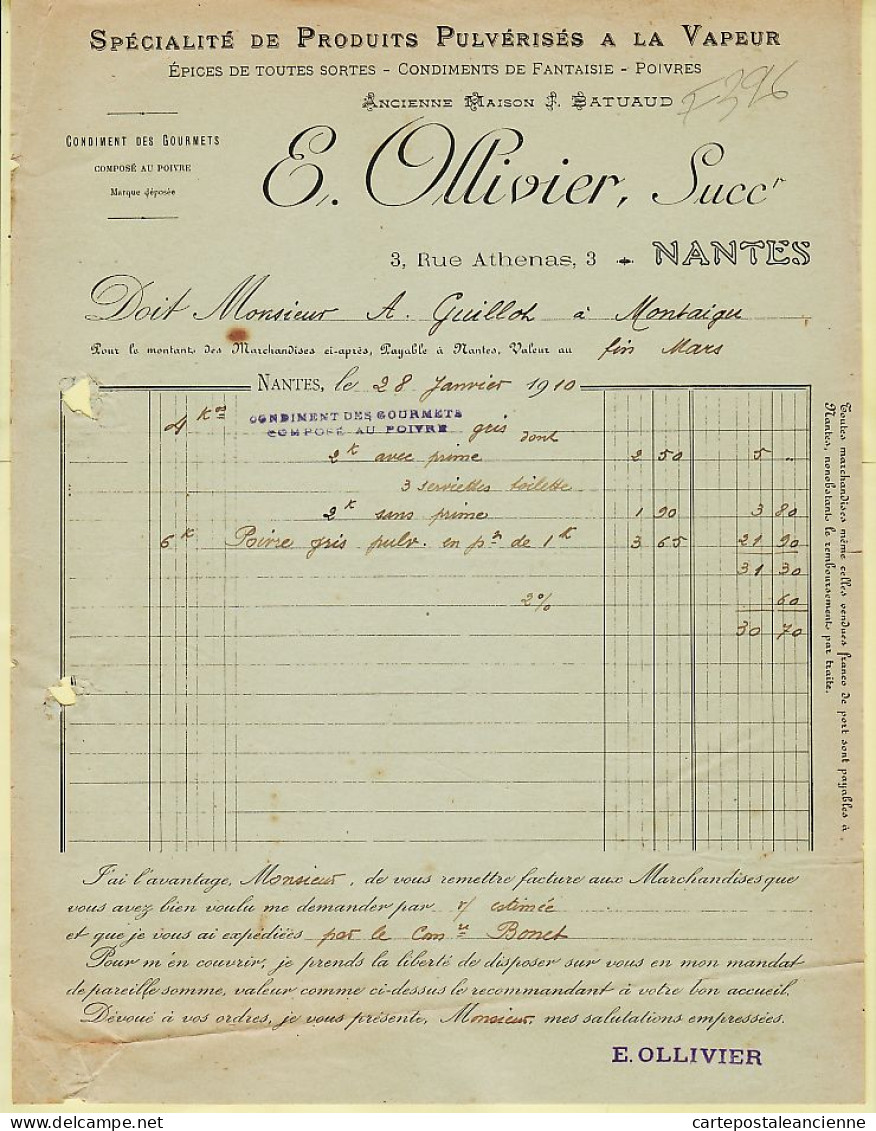 SPÉCIALITÉ DE PRODUITS PULVÉRISÉS A LA VAPEUR
ÉPICES DE TOUTES SORTES - CONDIMENTS DE FANTAISIE - POIVRES
ANCIENNE MAISON J. BATUAUD
F396
CONDIMENT DES GOURMETS
COMPOSÉ AU POIVRE
Marque déposée
E. Ollivier, Succr
3, Rue Athenas, 3 NANTES
Doit Monsieur A. Guillot à Montaigu
Pour le montant des Marchandises ci-après, Payable à Nantes, Valeur au fin Mars
NANTES, le 28 Janvier 1910
4 Kos CONDIMENT DES GOURMETS
COMPOSÉ AU POIVRE gris dont
2K avec prime 2 50 5 "
3 serviettes toilette
2K sans prime 1 90 3 80
6K Poivre gris pulv. en pn de 1K 3 65 21 90
31 30
2% 60
30 70
Toutes marchandises même celles vendues franco de port sont payables à
Nantes, nonobstant le remboursements par traite.
J'ai l'avantage, Monsieur, de vous remettre facture aux Marchandises que
vous avez bien voulu me demander par v/ estimée
et que je vous ai expédiées par le Comre Bonet
Pour m'en couvrir, je prends la liberté de disposer sur vous en mon mandat
de pareille somme, valeur comme ci-dessus le recommandant à votre bon accueil.
Dévoué à vos ordres, je vous présente, Monsieur, mes salutations empressées.
E. OLLIVIER
cartepostaleancienne